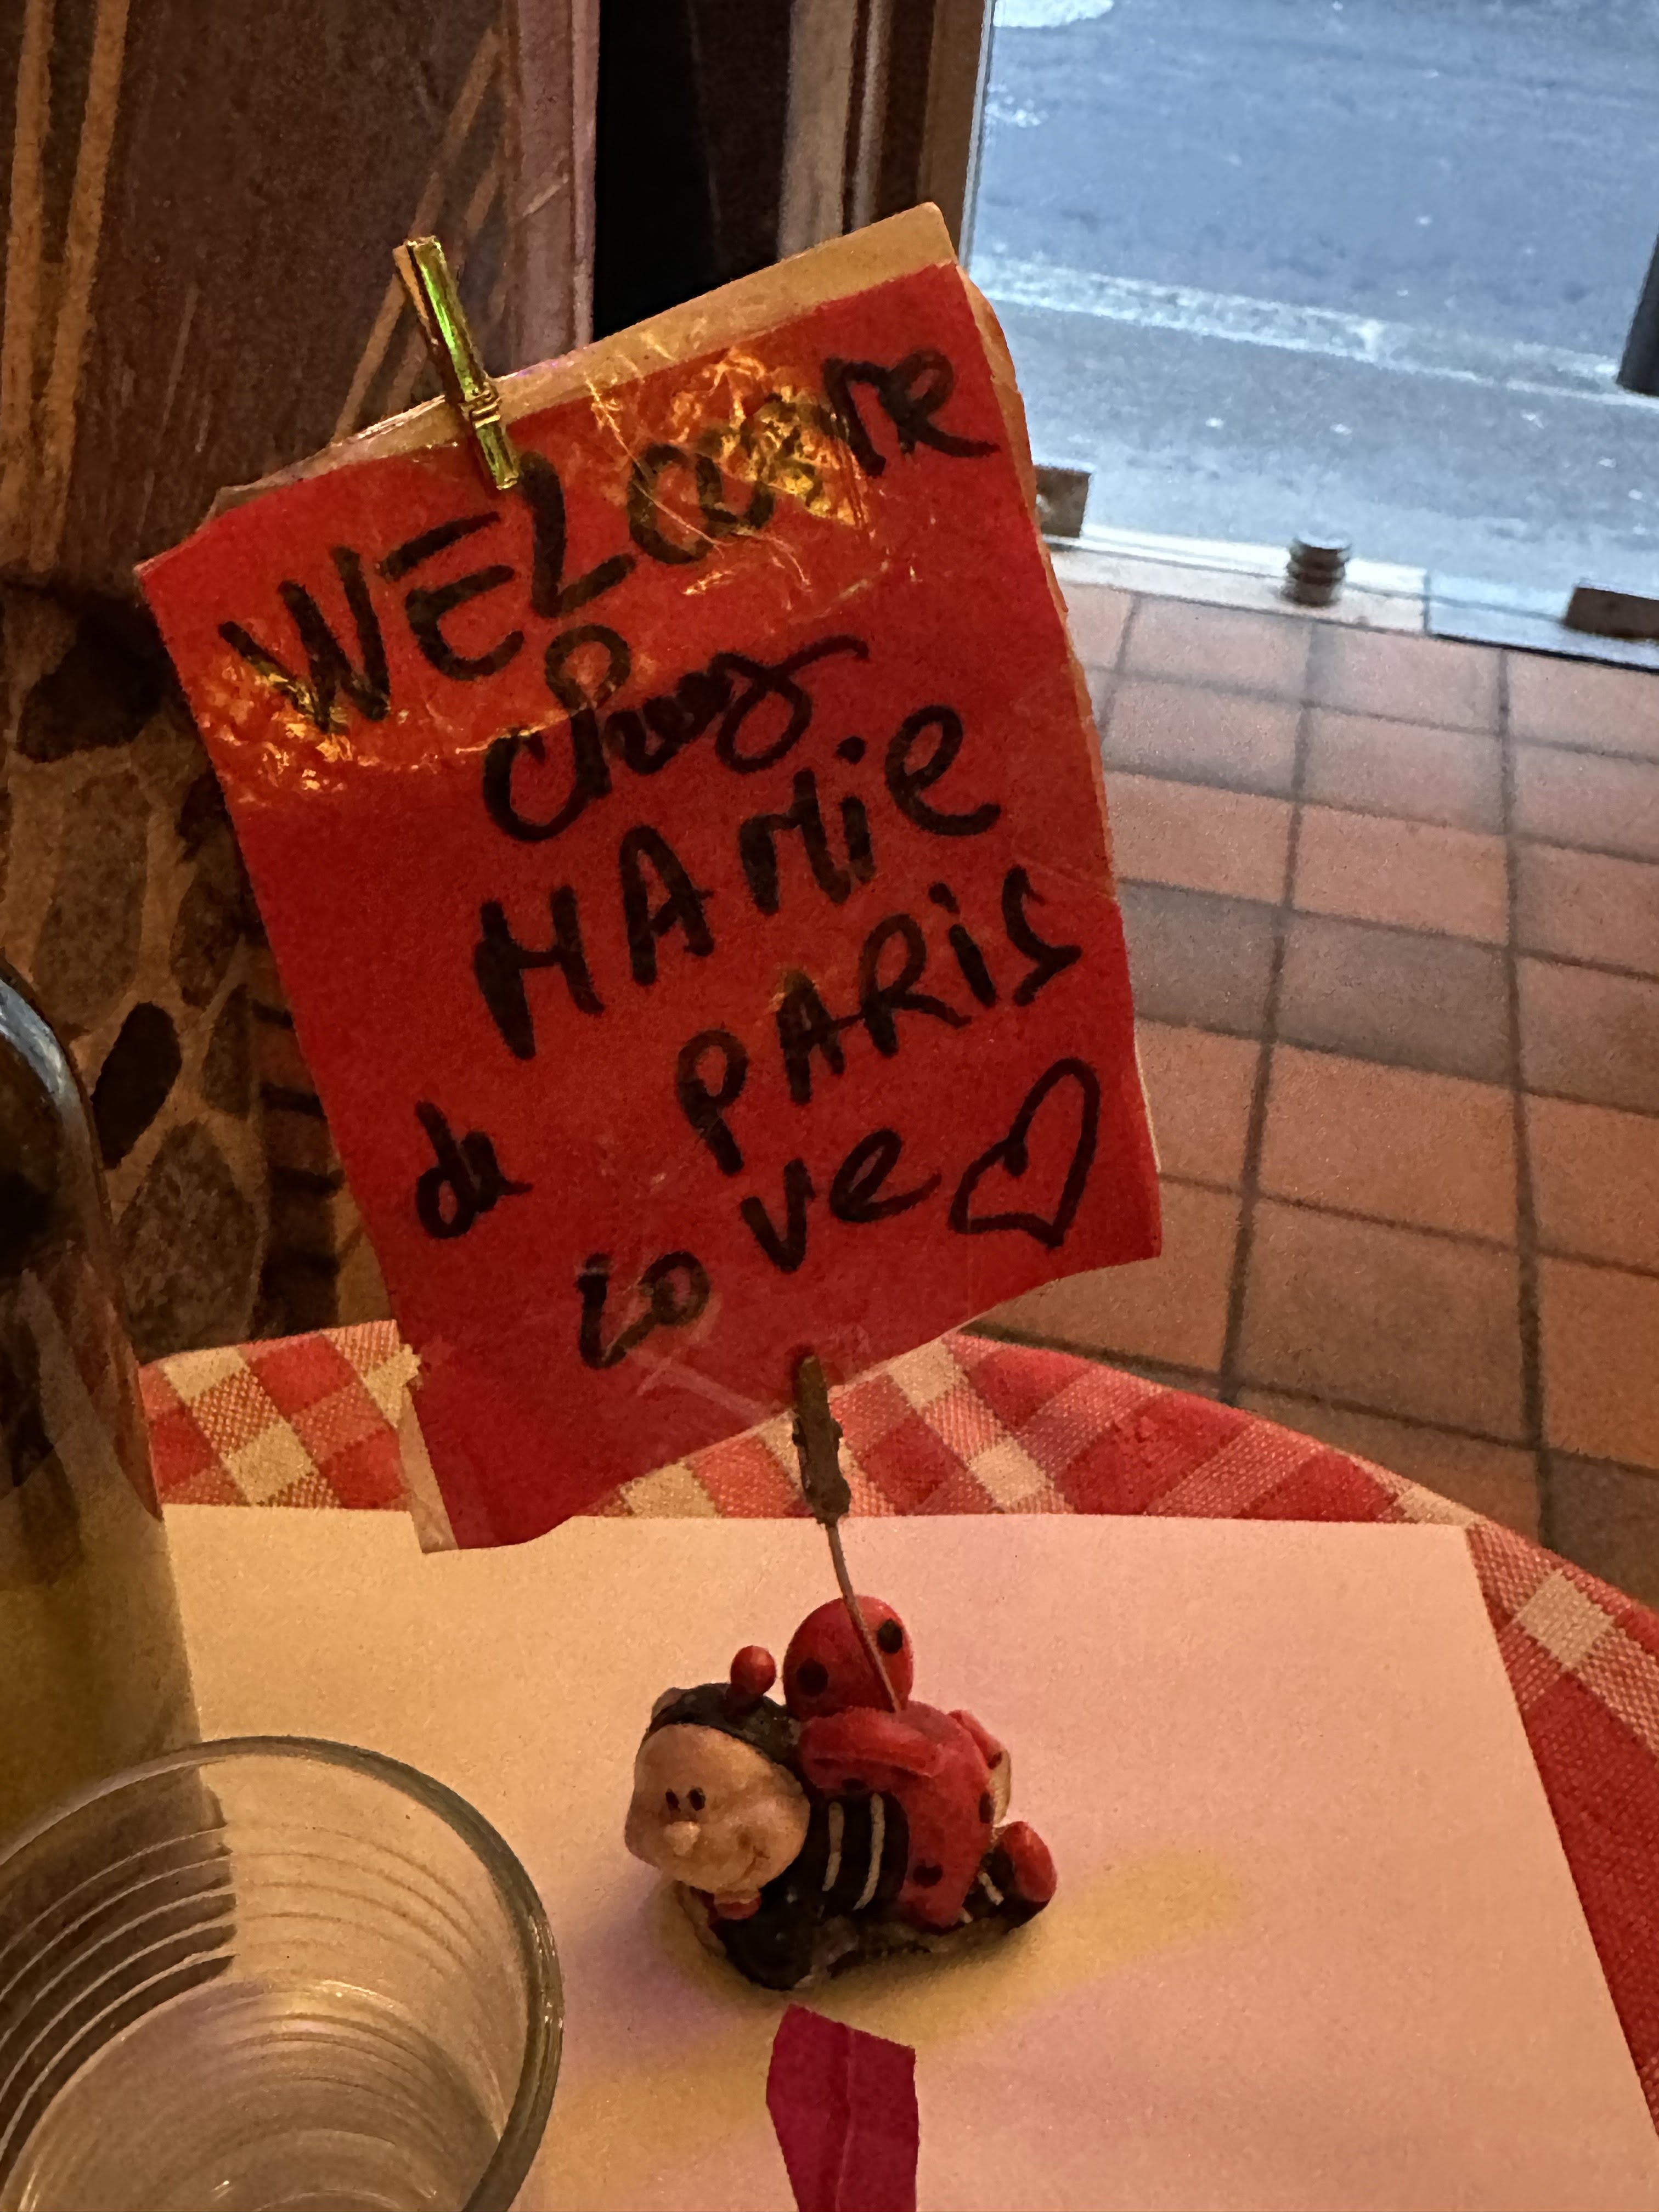 WELCOME
Chez
MAMie
de PARis
Love